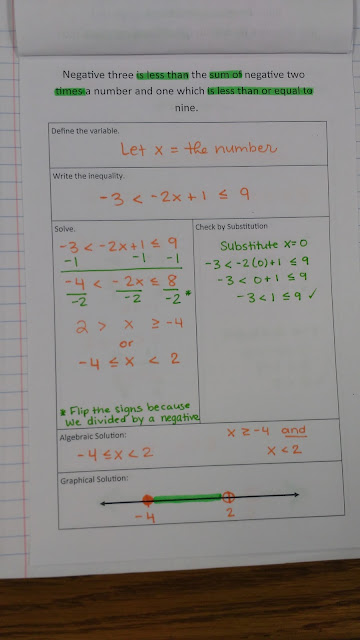 Negative three is less than the sum of negative two
times a number and one which is less than or equal to
nine.
Define the variable.
Let x = the number
Write the inequality.
-3 < -2x + 1 ≤ 9
Solve.
-3 < -2x + 1 ≤ 9
-1 -1 -1
-4 < -2x ≤ 8
-2 -2 -2 *
2 > x ≥ -4
or
-4 ≤ x < 2
* Flip the signs because
we divided by a negative
Check by Substitution
Substitute x=0
-3 < -2(0)+1 ≤ 9
-3 < 0+1 ≤ 9
-3 < 1 ≤ 9 ✓
Algebraic Solution:
-4 ≤ x < 2
x ≥ -4 and
x < 2
Graphical Solution:
-4 2